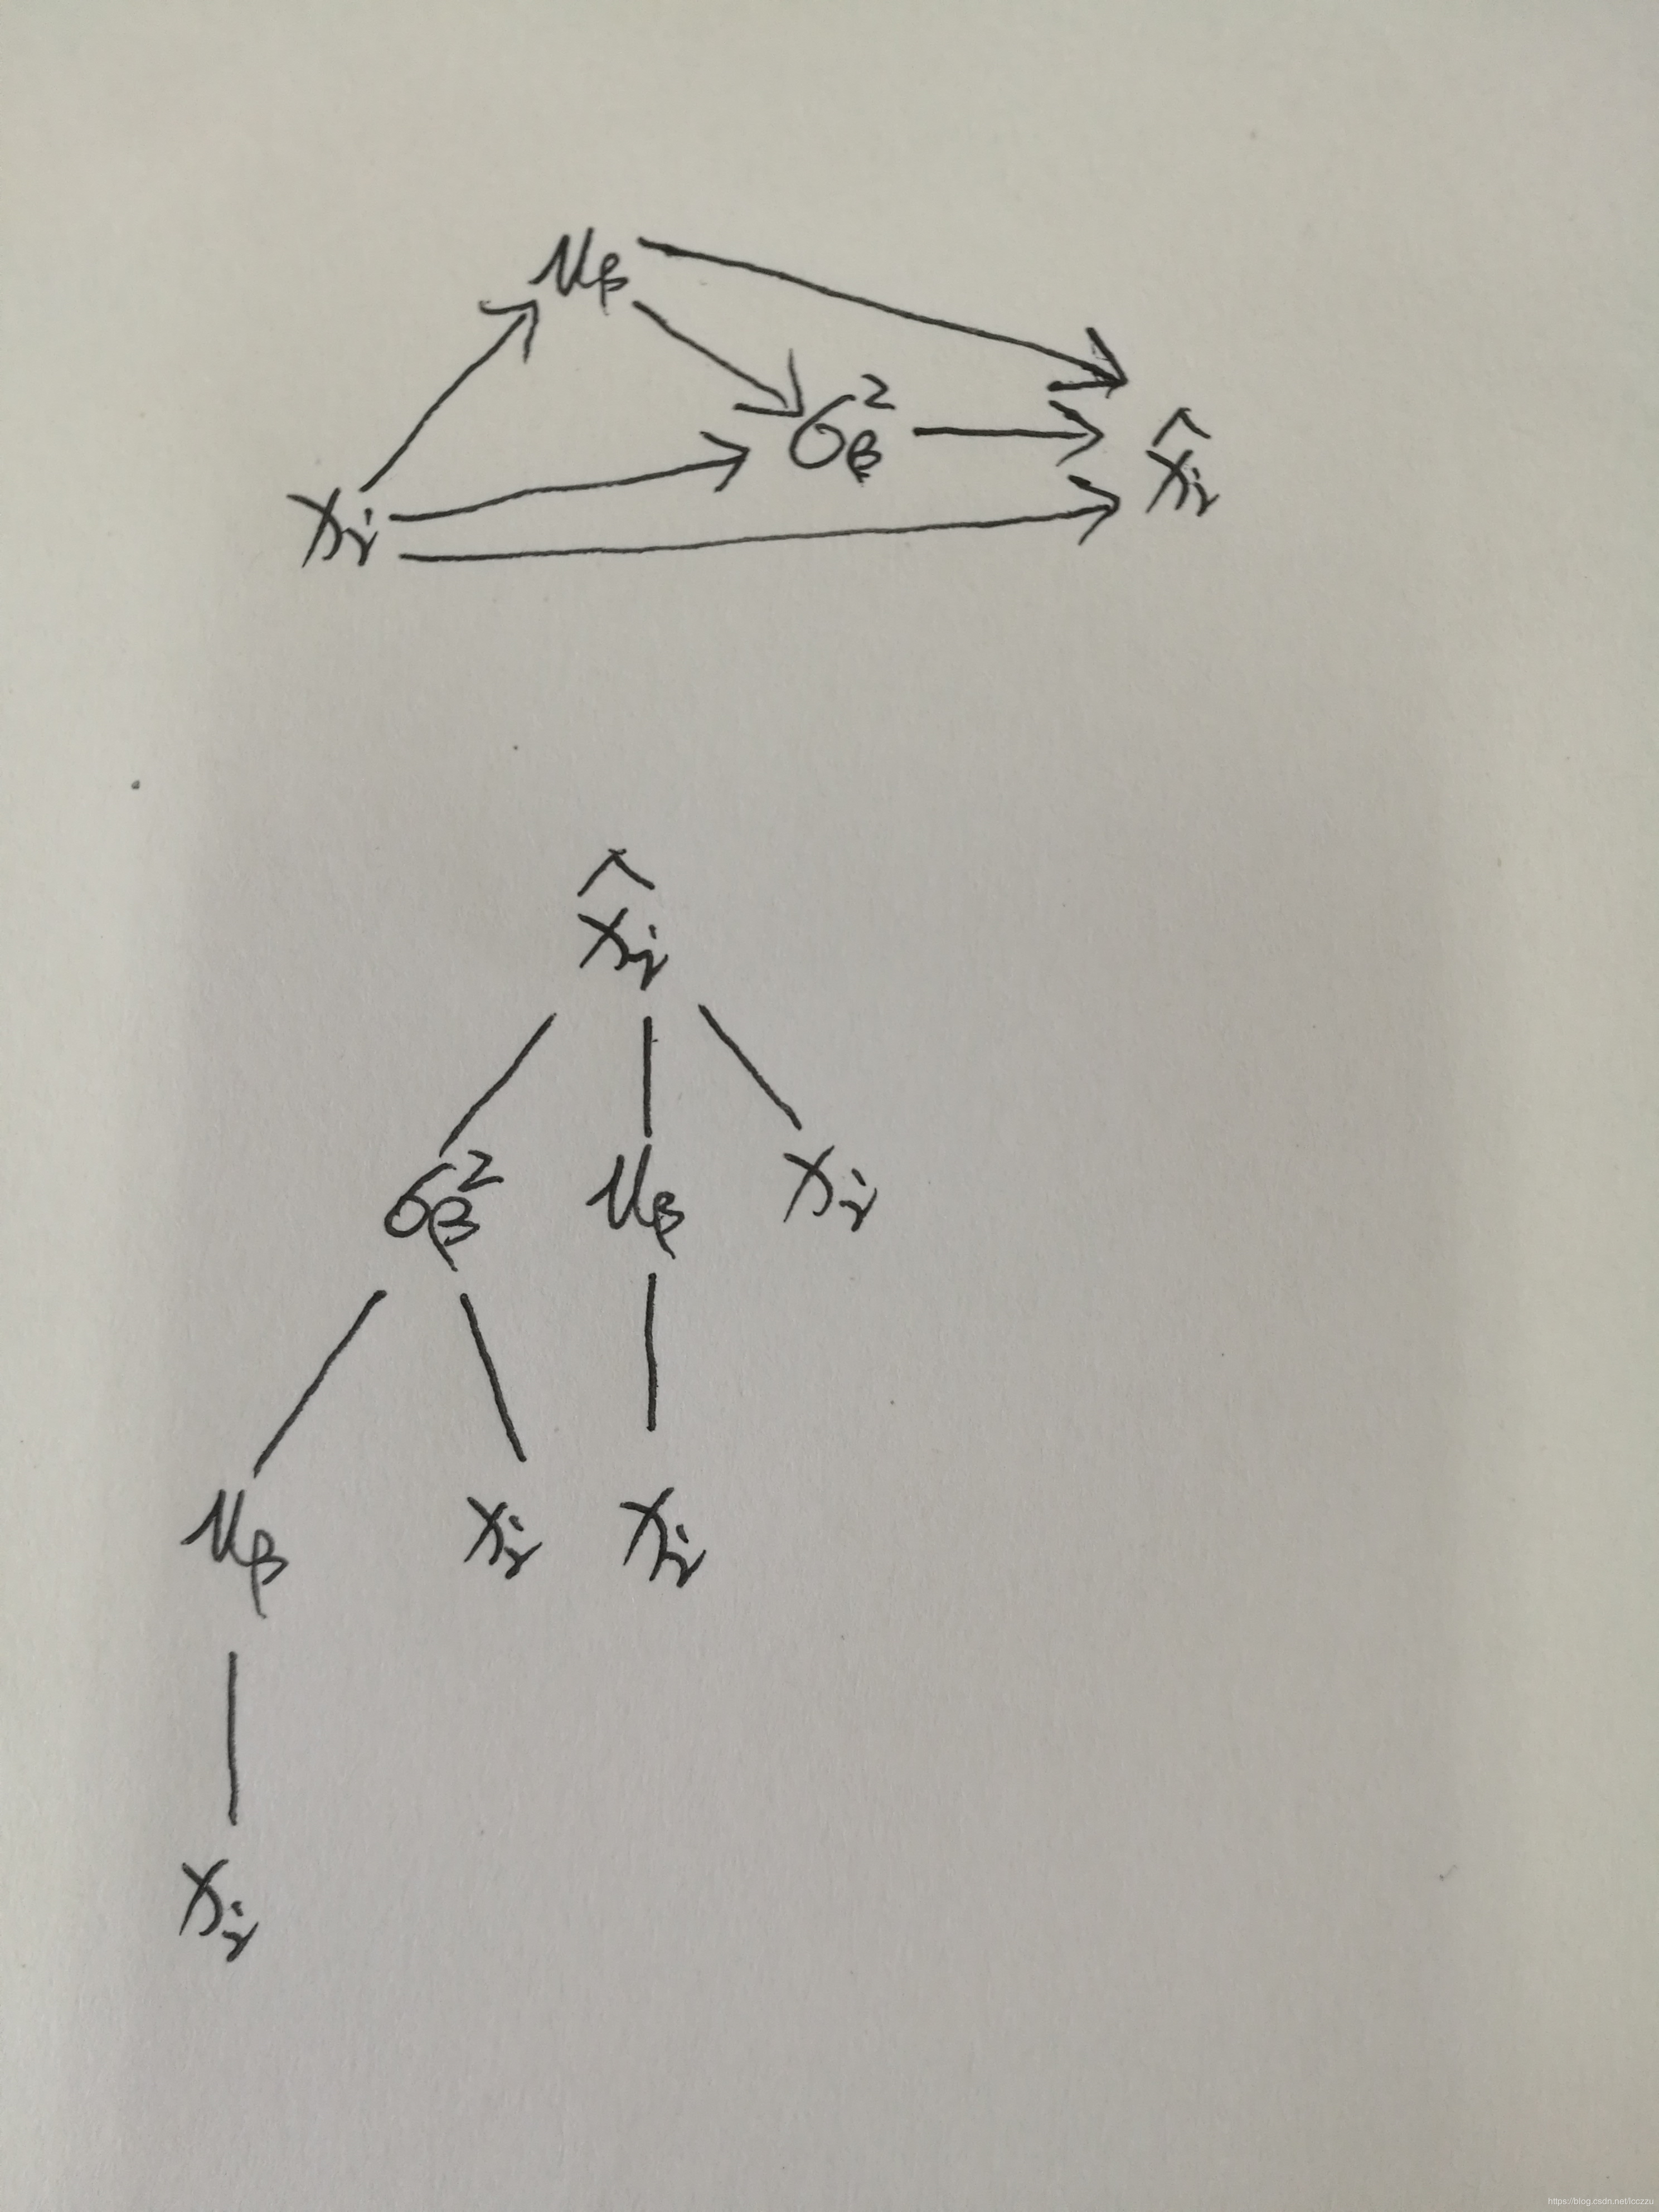 μβ
σβ²
x̂i
xi
x̂i
σβ² μβ xi
μβ xi xi
xi
https://blog.csdn.net/lcczzu